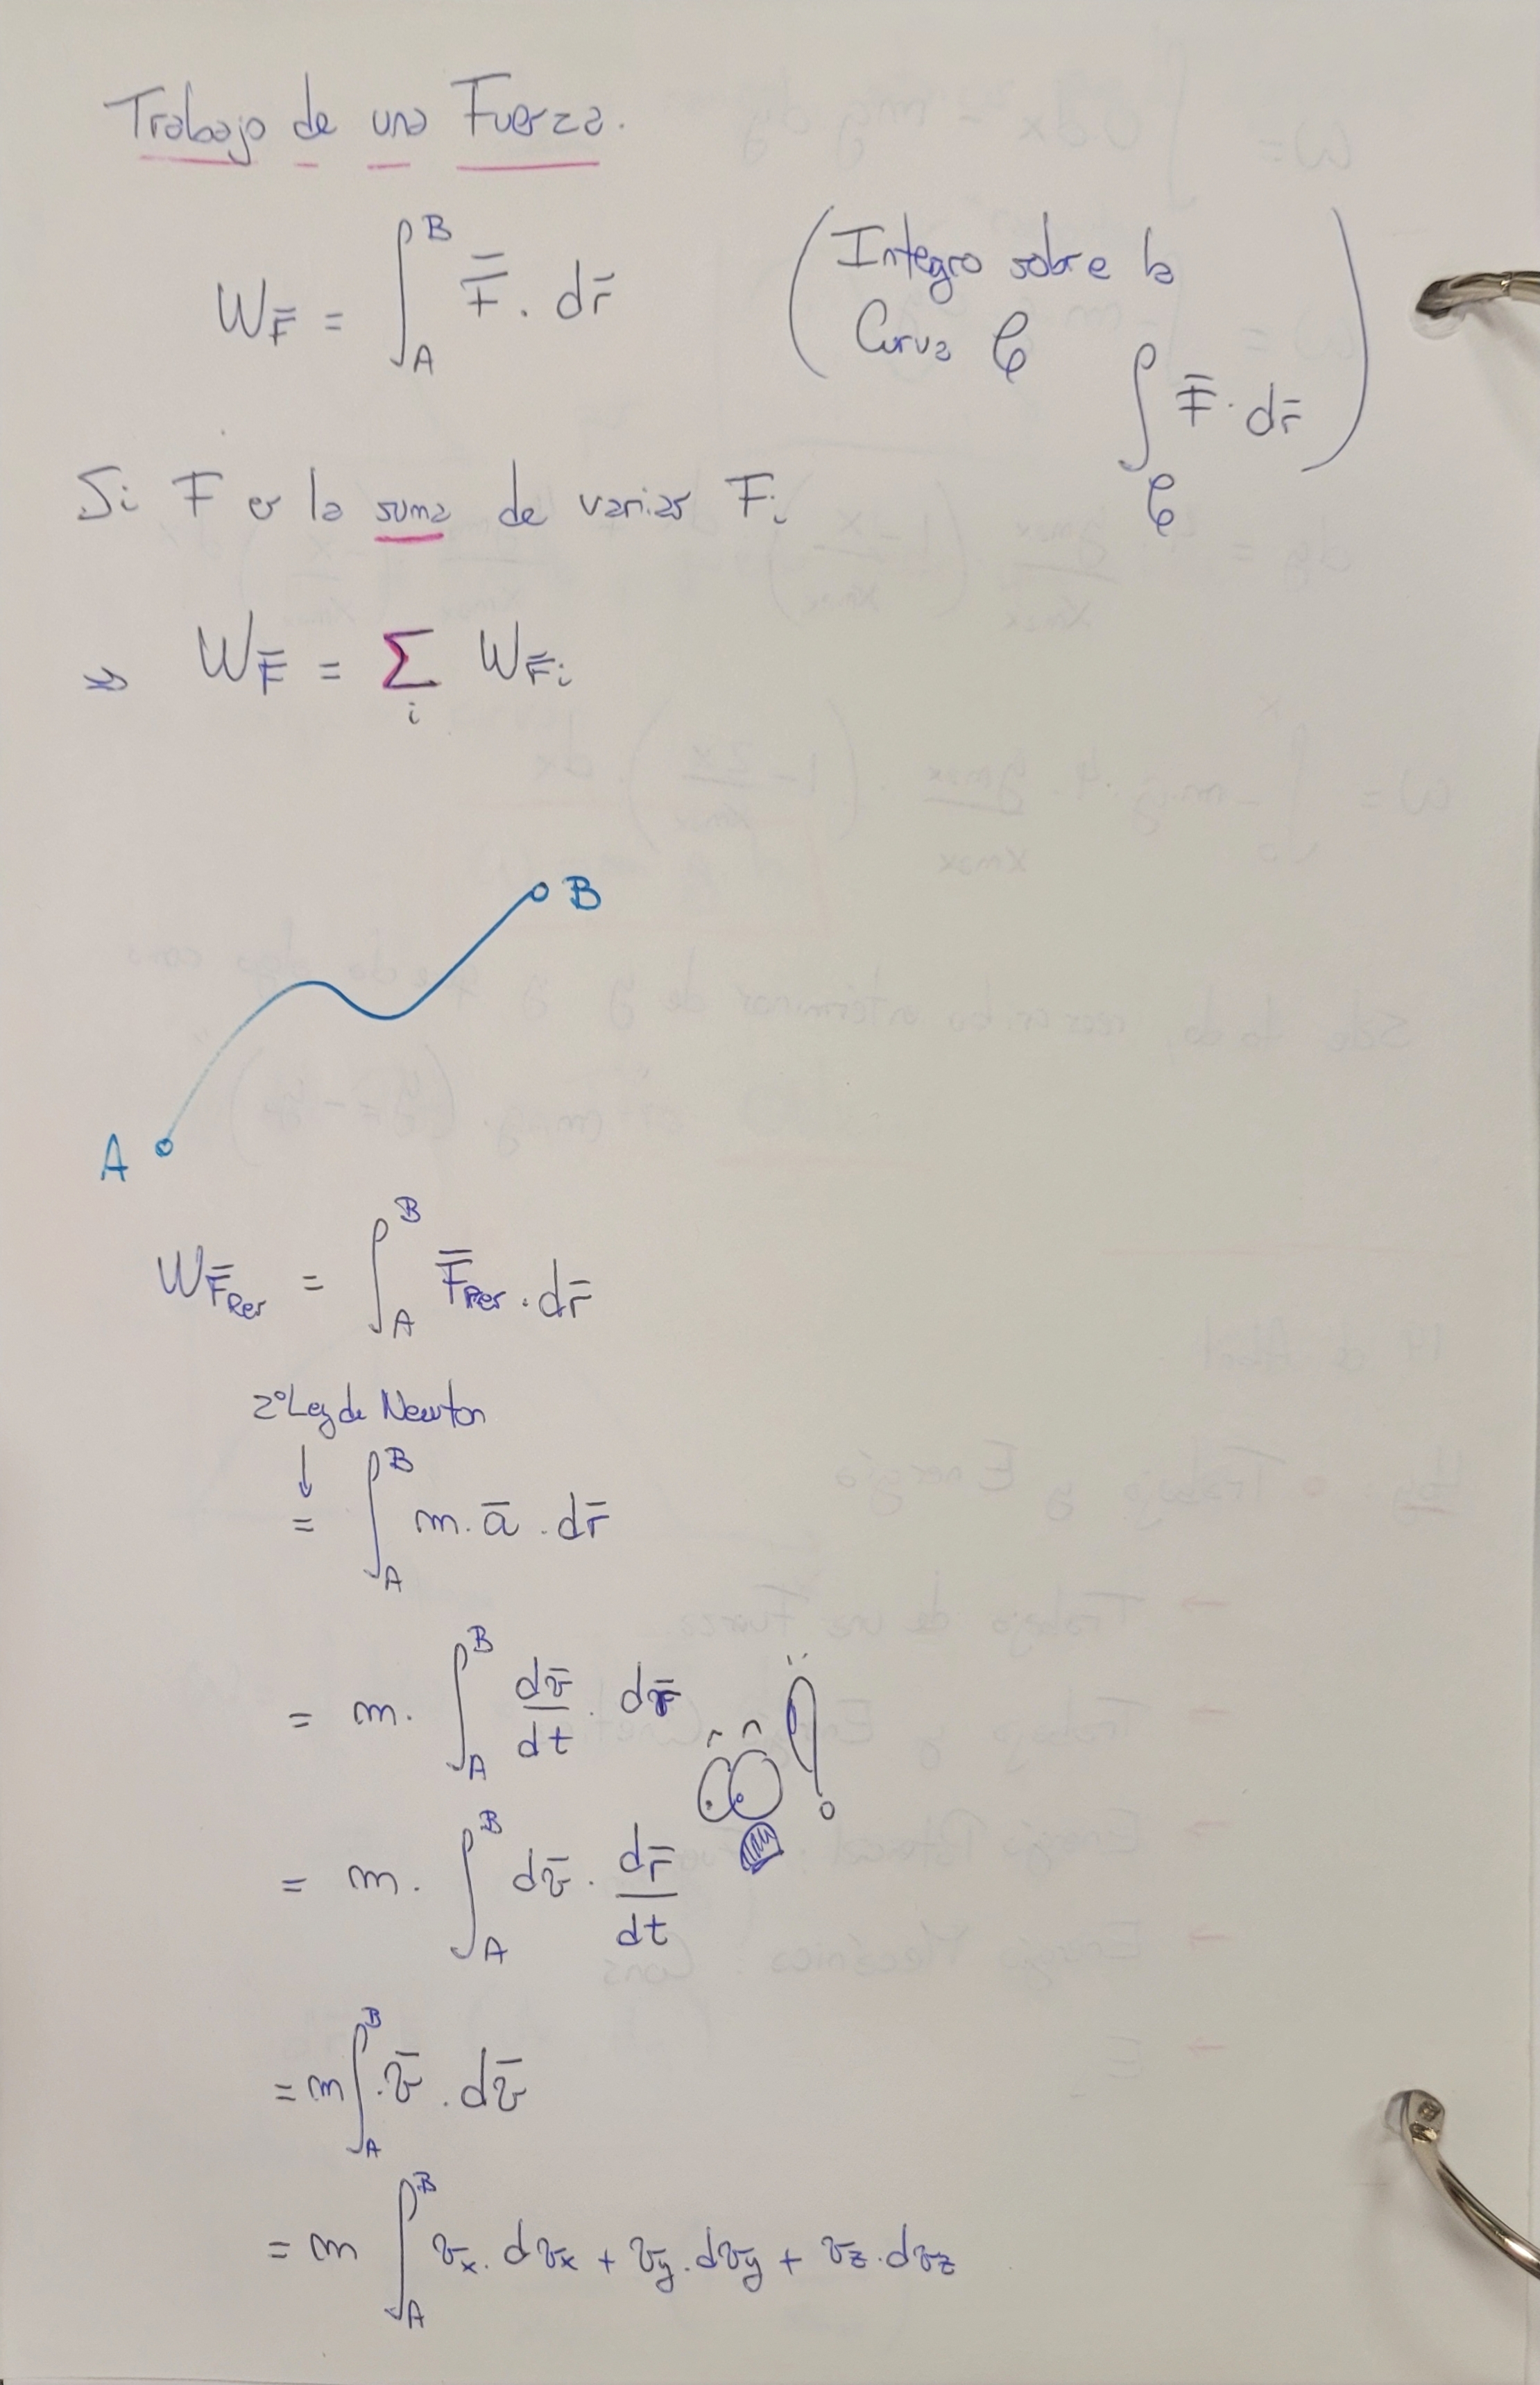 Trabajo de una Fuerza.
W_F̄ = ∫_A^B F̄ . dr̄
(Integro sobre la
Curva 𝒞
∫_𝒞 F̄ . dr̄)
Si F es la suma de varias Fi
⇒ W_F̄ = Σ_i W_F̄i
B
A
W_F̄Res = ∫_A^B F̄Res . dr̄
2º Ley de Newton
↓
= ∫_A^B m . ā . dr̄
= m . ∫_A^B dv̄/dt . dr̄ !
= m . ∫_A^B dv̄ . dr̄/dt
= m ∫_A^B . v̄ . dv̄
= m ∫_A^B vx . dvx + vy . dvy + vz . dvz